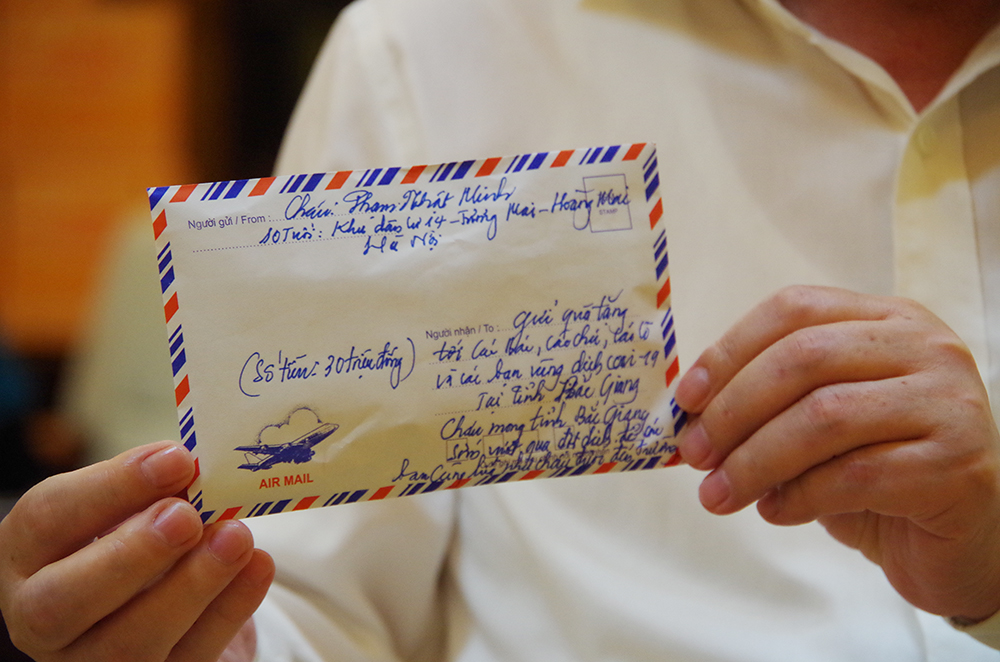 Người gửi / From : Cháu: Phạm Nhật Minh
10 Tuổi: Khu dân cư 14 - Trương Mai - Hoàng Mai
Hà Nội
STAMP
Người nhận / To : Gửi quà tặng
tới Các Bác, các chú, các cô
và các bạn vùng dịch covi-19
Tại tỉnh Bắc Giang
(Số tiền: 30 triệu đồng)
Cháu mong tỉnh Bắc Giang
Sớm vượt qua đợt dịch để các
bạn cùng lứa như cháu được đến trường
AIR MAIL